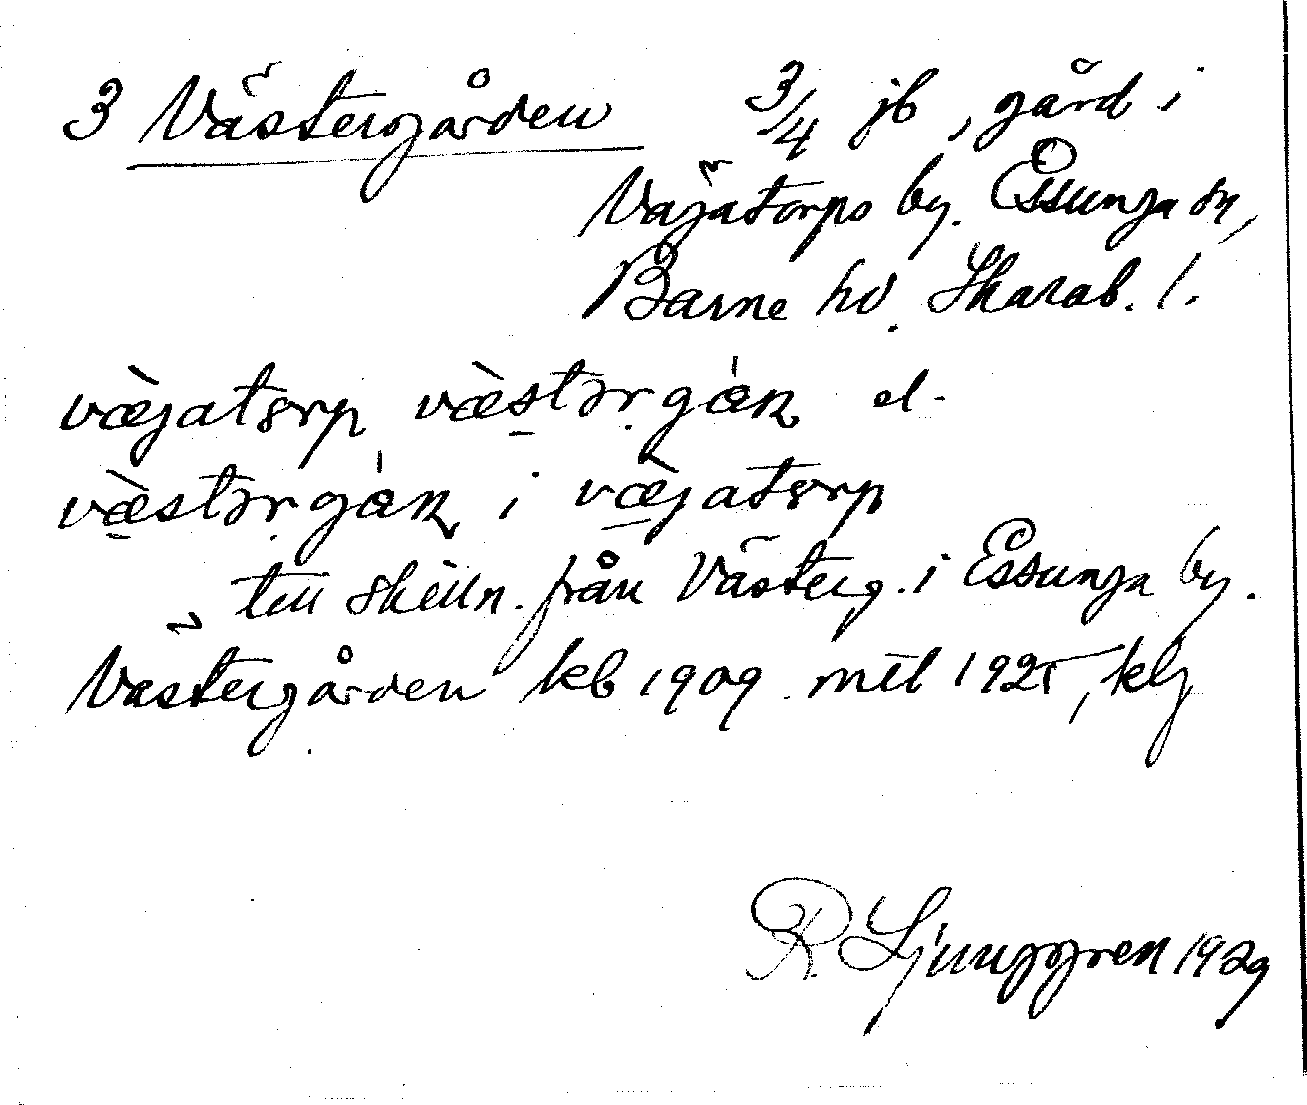 3 Västergården 3/4 jb, gård i
Väjatorps by. Essunga sn,
Barne hd. Skarab. l.
væ̀jatɜrp væ̀stərgȧɳ el.
væ̀stərgȧɳ i væ̀jatɜrp
till skilln. från Västerg. i Essunga by.
Västergården kb 1909 mtl 1925, klg
R. Ljunggren 1929